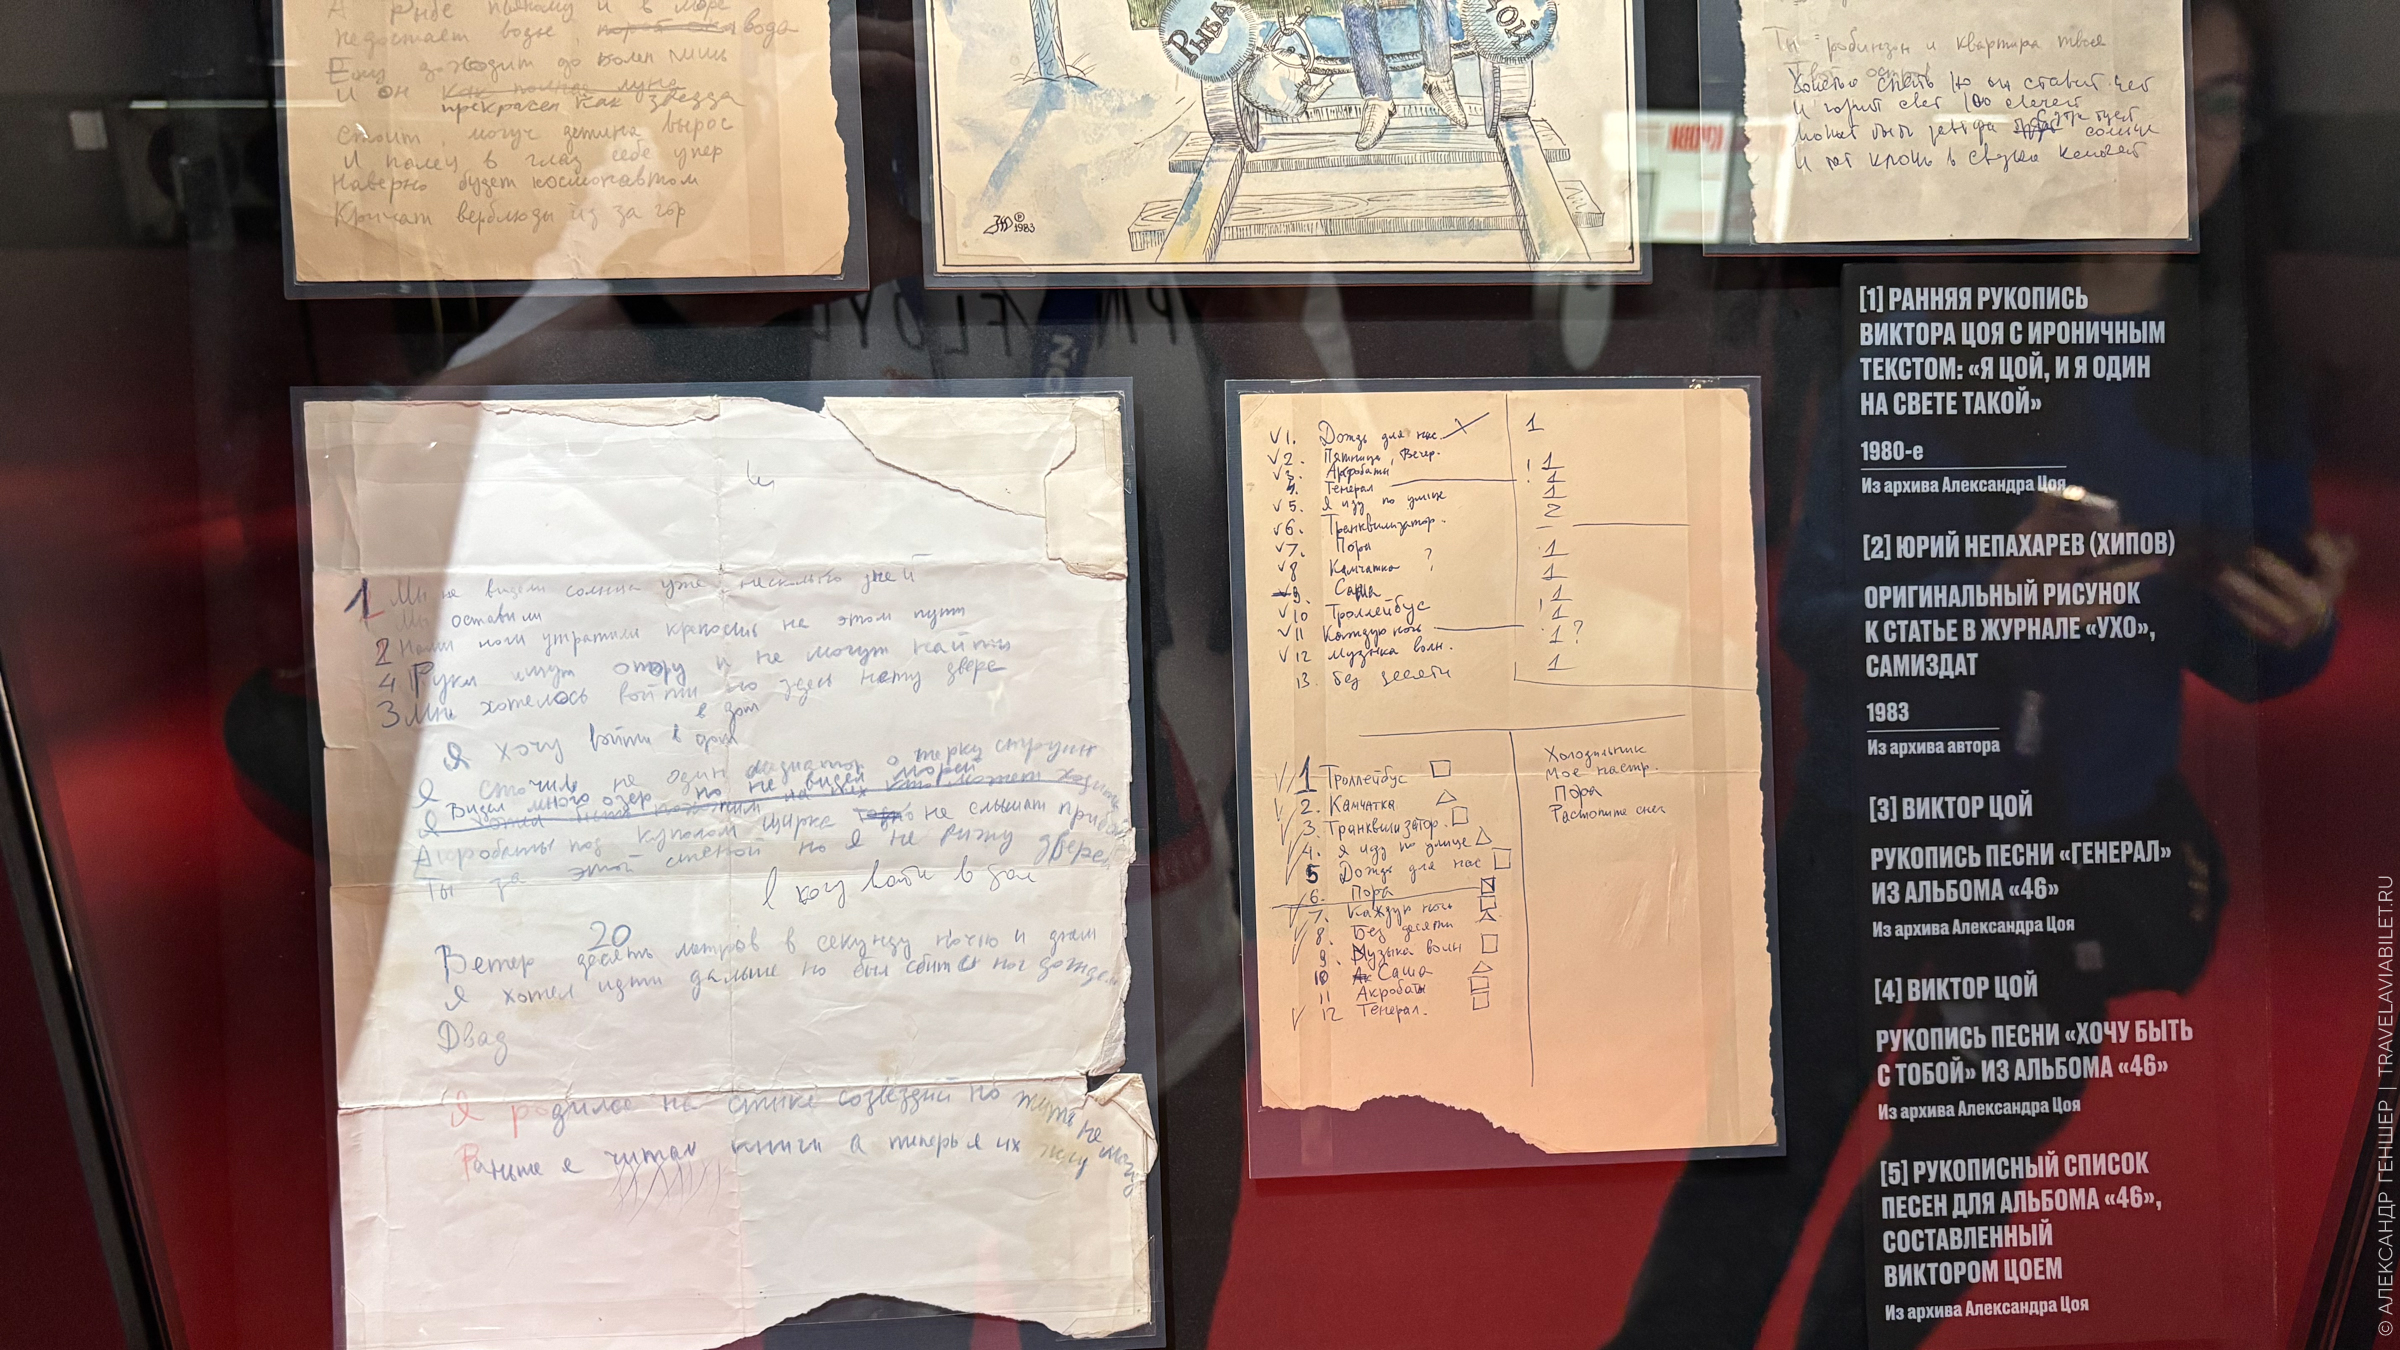 А рыбе пьяному и в море
недостаёт воды, вода
Ему доходит до колен лишь
и он как полная луна
прекрасен как звезда
Стоит, могуч детина вырос
И палец в глаз себе упер
Наверно будет космонавтом
Кричат верблюды из за гор
РЫБА
ЦОЙ
1983
Ты робинзон и квартира твоя
Твой остров
Хочется спать но он ставит чай
И горит свет 100 свечей
Может быть солнце
И тот ключ в связке ключей
1 Мы не видели солнца уже несколько дней
Мы оставили
2 Наши ноги утратили крепость на этом пути
4 Руки ищут опору и не могут найти
3 Мне хотелось войти но здесь нету двере
в дом
Я хочу войти в дом
Я сточил не один медиатор о терку струн
Видел много озер но не видел морей
Я
Акробаты под куполом цирка не слышат прибой
Ты за этой стеной но я не вижу дверей
Я хочу войти в дом
20
Ветер десять метров в секунду ночью и днем
Я хотел идти дальше но был сбит с ног дождем
Двад
Я родился на стыке созвездий но жить не могу
Раньше я читал книги а теперь я их жгу
√ 1. Дождь для нас. 1
√ 2. Пятница, Вечер.
√ 3. Акробаты ! 1
4. Генерал ! 1
√ 5. Я иду по улице 1
√ 6. Транквилизатор. 2
√ 7. Пора
√ 8 Камчатка ? 1
9. Саша 1
√ 10 Троллейбус 1
√ 11 Каждую ночь ! 1
√ 12 музыка волн. 1 ?
13. без десяти 1
1 Троллейбус □
2. Камчатка △
3. Транквилизатор. □
4. Я иду по улице △
5 Дождь для нас □
6. Пора
7. Каждую ночь □
8. Без десяти △
9. Музыка волн □
10 Ак Саша △
11 Акробаты □
12 Генерал. □
Холодильник
мое настр.
Пора
Растопите снег
[1] РАННЯЯ РУКОПИСЬ
ВИКТОРА ЦОЯ С ИРОНИЧНЫМ
ТЕКСТОМ: «Я ЦОЙ, И Я ОДИН
НА СВЕТЕ ТАКОЙ»
1980-е
Из архива Александра Цоя
[2] ЮРИЙ НЕПАХАРЕВ (ХИПОВ)
ОРИГИНАЛЬНЫЙ РИСУНОК
К СТАТЬЕ В ЖУРНАЛЕ «УХО»,
САМИЗДАТ
1983
Из архива автора
[3] ВИКТОР ЦОЙ
РУКОПИСЬ ПЕСНИ «ГЕНЕРАЛ»
ИЗ АЛЬБОМА «46»
Из архива Александра Цоя
[4] ВИКТОР ЦОЙ
РУКОПИСЬ ПЕСНИ «ХОЧУ БЫТЬ
С ТОБОЙ» ИЗ АЛЬБОМА «46»
Из архива Александра Цоя
[5] РУКОПИСНЫЙ СПИСОК
ПЕСЕН ДЛЯ АЛЬБОМА «46»,
СОСТАВЛЕННЫЙ
ВИКТОРОМ ЦОЕМ
Из архива Александра Цоя
© АЛЕКСАНДР ГЕНШЕР | TRAVELAVIABILET.RU